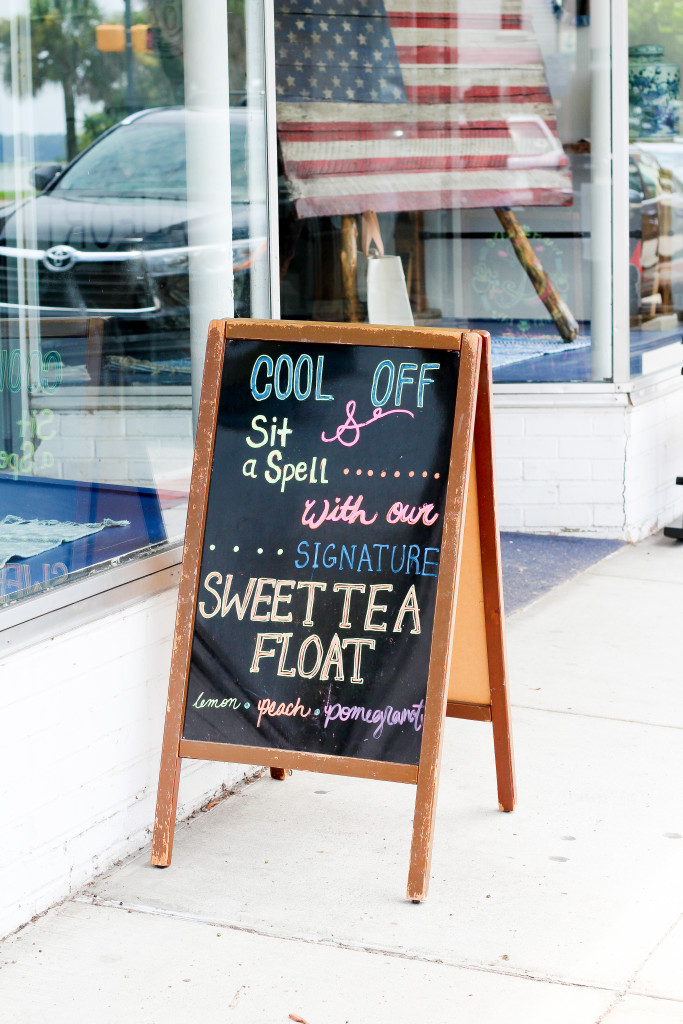 COOL OFF
&
Sit
a Spell ........
with our
.... SIGNATURE
SWEET TEA
FLOAT
lemon • peach • pomegranate